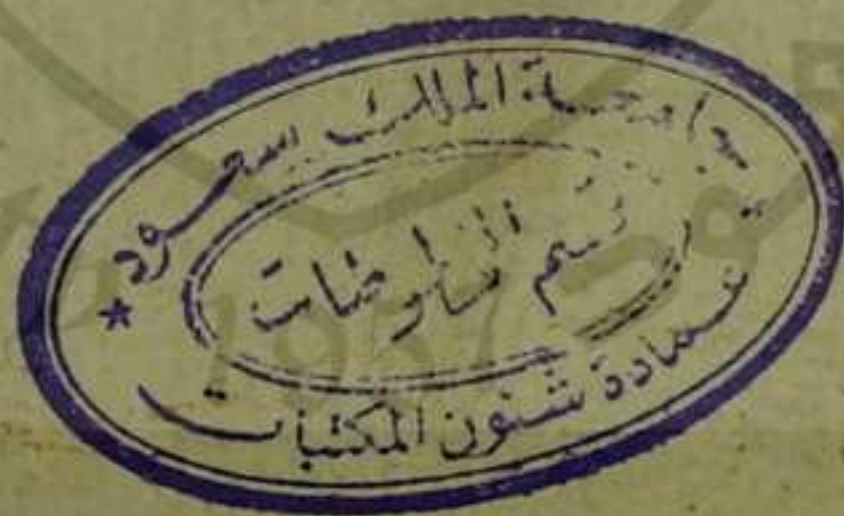 جامعة الملك سعود *
قسم المخطوطات
عمادة شئون المكتبات
1957